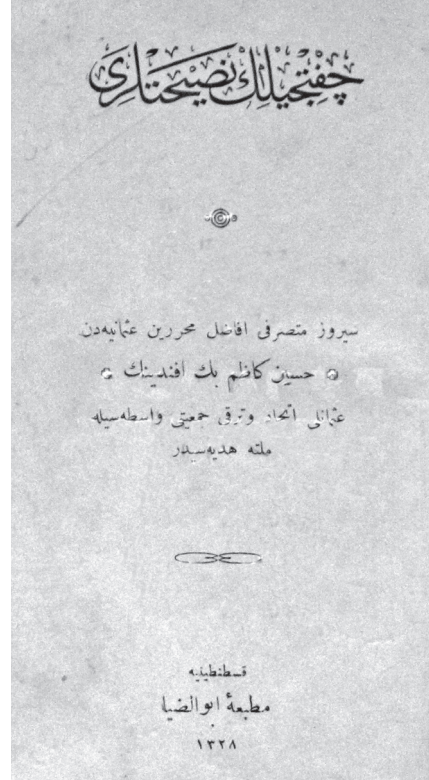 چفتجيلك نصيحتلری
سيروز متصرفی افاضل محررين عثمانيه‌دن
حسين كاظم بك افندينك
عثمانلی اتحاد وترقی جمعيتی واسطه‌سيله
ملته هديه‌سيدر
قسطنطينيه
مطبعهٔ ابوالضيا
١٣٢٨